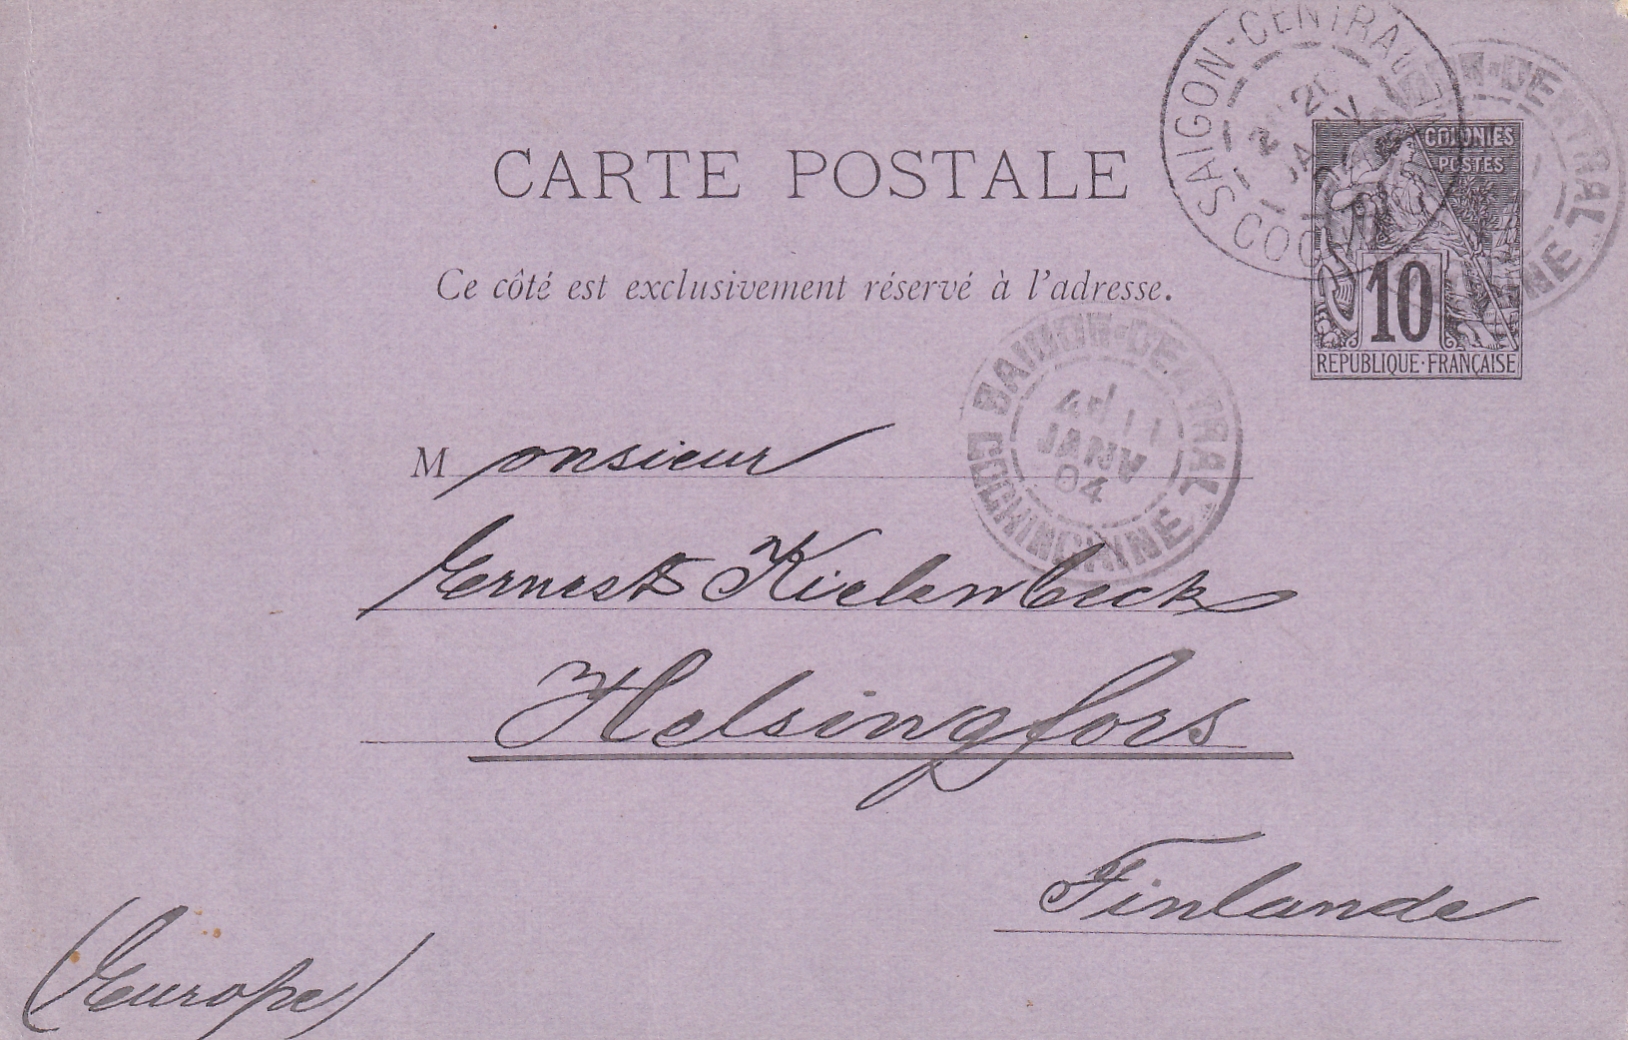 SAIGON-CENTRAL
COLONIES
POSTES
10
REPUBLIQUE·FRANÇAISE
CARTE POSTALE
Ce côté est exclusivement réservé à l'adresse.
SAIGON-CENTRAL
JANV
04
COCHINCHINE
Monsieur
Ernest Kielenbeck
Helsingfors
Finlande
(Europe)